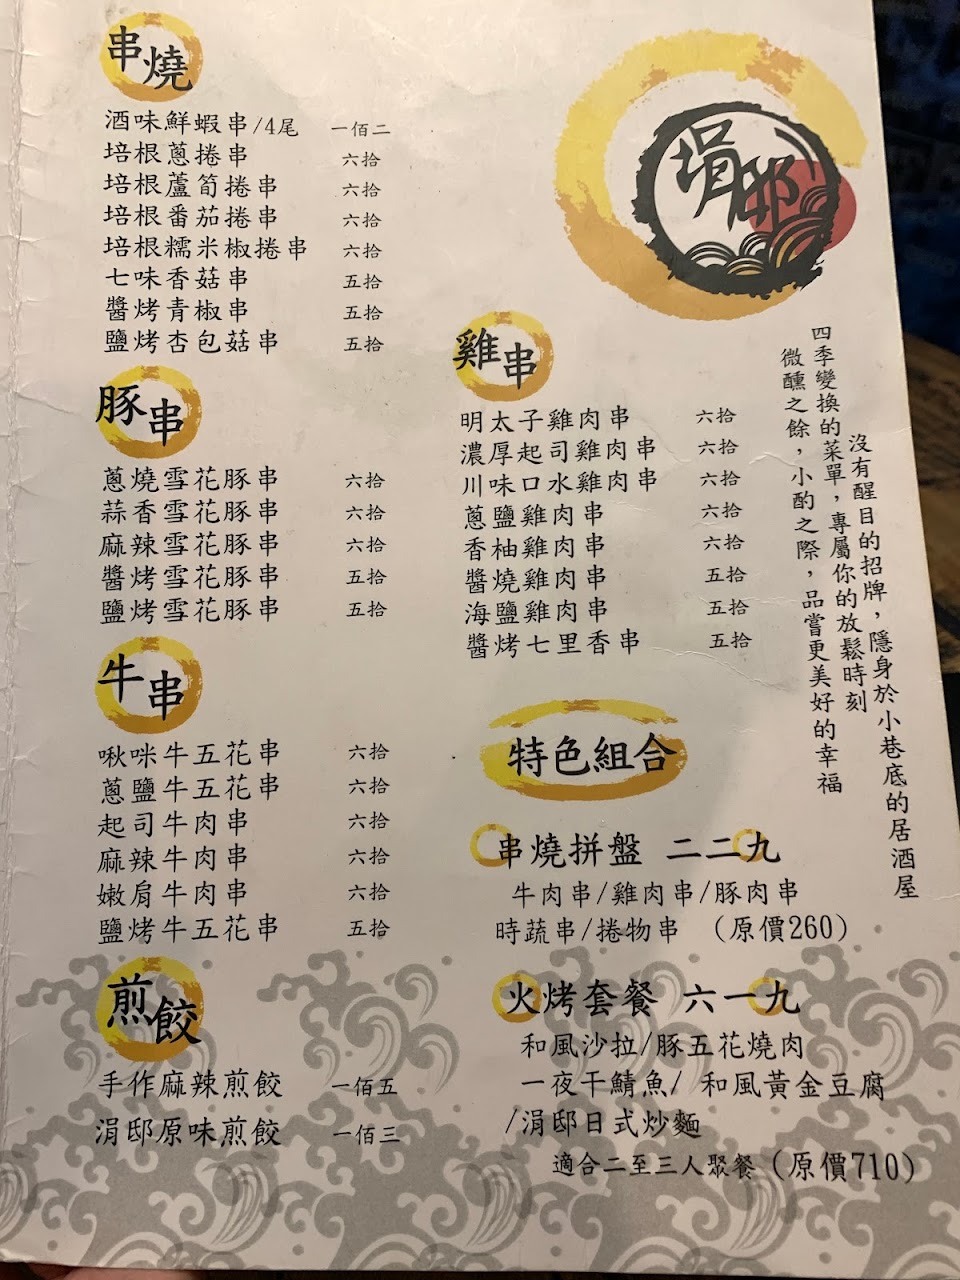 串燒
酒味鮮蝦串/4尾 一佰二
培根蔥捲串 六拾
培根蘆筍捲串 六拾
培根番茄捲串 六拾
培根糯米椒捲串 六拾
七味香菇串 五拾
醬烤青椒串 五拾
鹽烤杏包菇串 五拾
豚串
蔥燒雪花豚串 六拾
蒜香雪花豚串 六拾
麻辣雪花豚串 六拾
醬烤雪花豚串 五拾
鹽烤雪花豚串 五拾
牛串
啾咪牛五花串 六拾
蔥鹽牛五花串 六拾
起司牛肉串 六拾
麻辣牛肉串 六拾
嫩肩牛肉串 六拾
鹽烤牛五花串 五拾
煎餃
手作麻辣煎餃 一佰五
涓邸原味煎餃 一佰三
涓邸
沒有醒目的招牌，隱身於小巷底的居酒屋
四季變換的菜單，專屬你的放鬆時刻
微醺之餘，小酌之際，品嘗更美好的幸福
雞串
明太子雞肉串 六拾
濃厚起司雞肉串 六拾
川味口水雞肉串 六拾
蔥鹽雞肉串 六拾
香柚雞肉串 六拾
醬燒雞肉串 五拾
海鹽雞肉串 五拾
醬烤七里香串 五拾
特色組合
串燒拼盤 二二九
牛肉串/雞肉串/豚肉串
時蔬串/捲物串 (原價260)
火烤套餐 六一九
和風沙拉/豚五花燒肉
一夜干鯖魚/ 和風黃金豆腐
/涓邸日式炒麵
適合二至三人聚餐 (原價710)